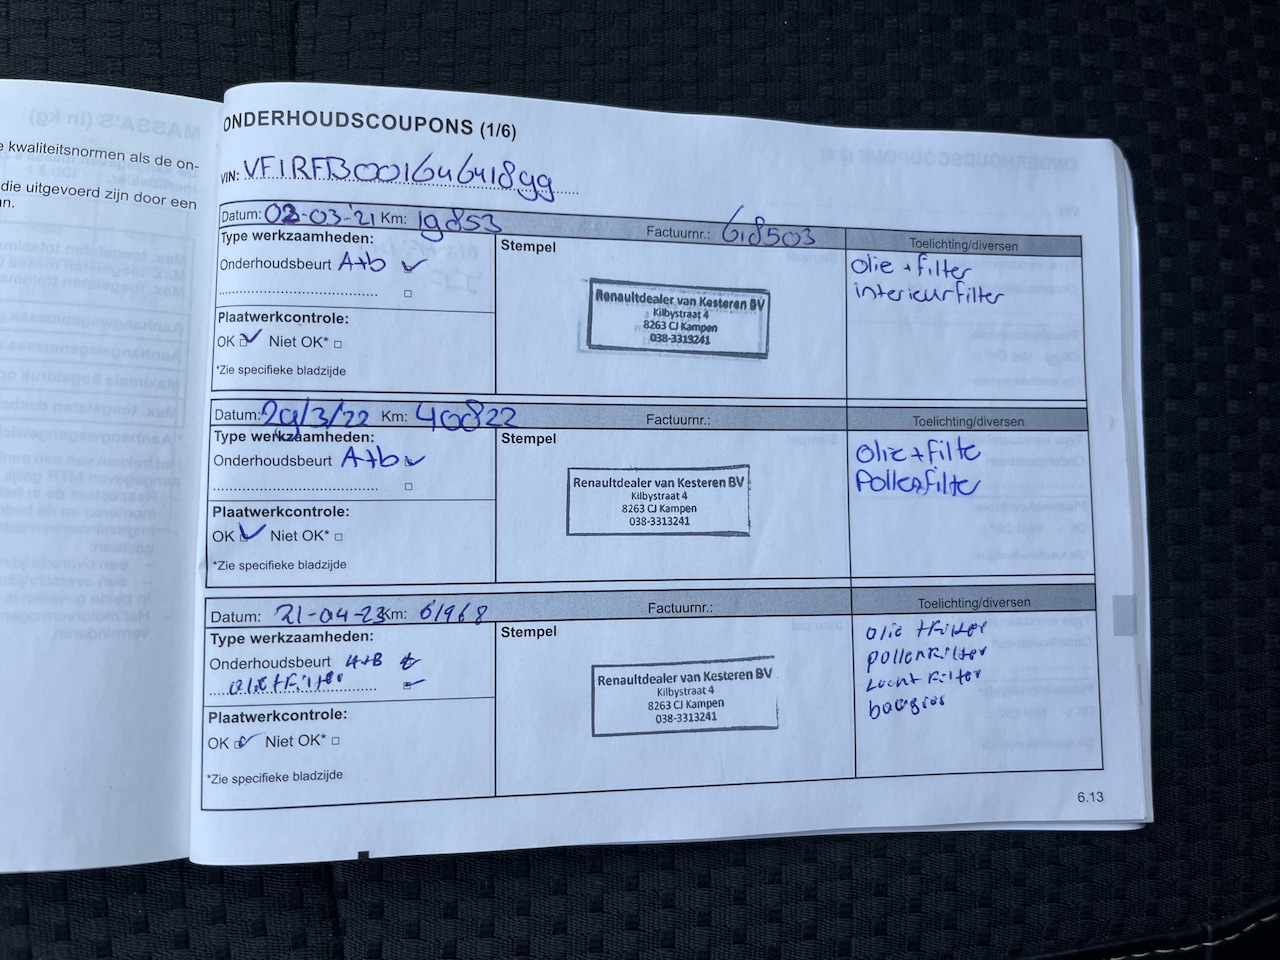 e kwaliteitsnormen als de on-
die uitgevoerd zijn door een
n.
MASSA'S (in kg)
ONDERHOUDSCOUPONS (1/6)
VIN: VF1RFB00164641899
Datum: 02-03-'21 Km: 19853 Factuurnr.: 618503 Toelichting/diversen
Type werkzaamheden:
Stempel
Onderhoudsbeurt A+b
olie + filter
interieurfilter
Renaultdealer van Kesteren BV
Kilbystraat 4
8263 CJ Kampen
038-3313241
Plaatwerkcontrole:
OK Niet OK*
*Zie specifieke bladzijde
Datum: 29/3/22 Km: 40822 Factuurnr.: Toelichting/diversen
Type werkzaamheden:
Stempel
Onderhoudsbeurt A+b
Olie+filte
Pollenfilter
Renaultdealer van Kesteren BV
Kilbystraat 4
8263 CJ Kampen
038-3313241
Plaatwerkcontrole:
OK Niet OK*
*Zie specifieke bladzijde
Datum: 21-04-23 Km: 61968 Factuurnr.: Toelichting/diversen
Type werkzaamheden:
Stempel
Onderhoudsbeurt A+B
olie+filter
olie +filter
pollenfilter
Lucht filter
Renaultdealer van Kesteren BV
Kilbystraat 4
8263 CJ Kampen
038-3313241
Plaatwerkcontrole:
OK Niet OK*
*Zie specifieke bladzijde
6.13